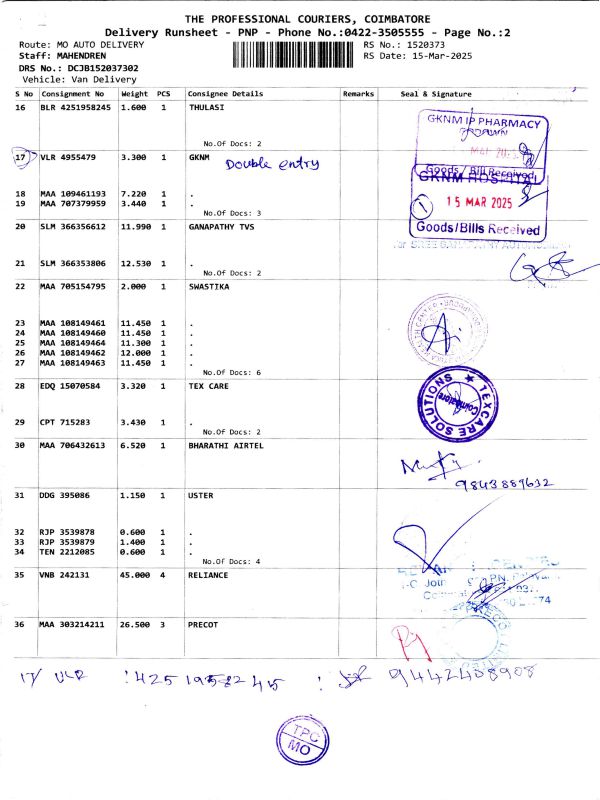 THE PROFESSIONAL COURIERS, COIMBATORE
Delivery Runsheet - PNP - Phone No.:0422-3505555 - Page No.:2
Route: MO AUTO DELIVERY RS No.: 1520373
Staff: MAHENDREN RS Date: 15-Mar-2025
DRS No.: DCJB152037302
Vehicle: Van Delivery
S No Consignment No Weight PCS Consignee Details Remarks Seal & Signature
16 BLR 4251958245 1.600 1 THULASI
No.Of Docs: 2
GKNM IP PHARMACY
17 VLR 4955479 3.300 1 GKNM Double entry
Goods / Bill Received
GKNM HOSPITAL
18 MAA 109461193 7.220 1 .
19 MAA 707379959 3.440 1 .
15 MAR 2025
No.Of Docs: 3
20 SLM 366356612 11.990 1 GANAPATHY TVS
Goods/Bills Received
21 SLM 366353806 12.530 1 .
No.Of Docs: 2
22 MAA 705154795 2.000 1 SWASTIKA
23 MAA 108149461 11.450 1 .
24 MAA 108149460 11.450 1 .
25 MAA 108149464 11.300 1 .
26 MAA 108149462 12.000 1 .
27 MAA 108149463 11.450 1 .
No.Of Docs: 6
28 EDQ 15070584 3.320 1 TEX CARE
TEXCARE SOLUTIONS
Coimbatore
29 CPT 715283 3.430 1 .
No.Of Docs: 2
30 MAA 706432613 6.520 1 BHARATHI AIRTEL
9843889632
31 DDG 395086 1.150 1 USTER
32 RJP 3539878 0.600 1 .
33 RJP 3539879 1.400 1 .
34 TEN 2212085 0.600 1 .
No.Of Docs: 4
35 VNB 242131 45.000 4 RELIANCE
36 MAA 303214211 26.500 3 PRECOT
17 VLR : 4251958245 : 9442438908
TPC
MO